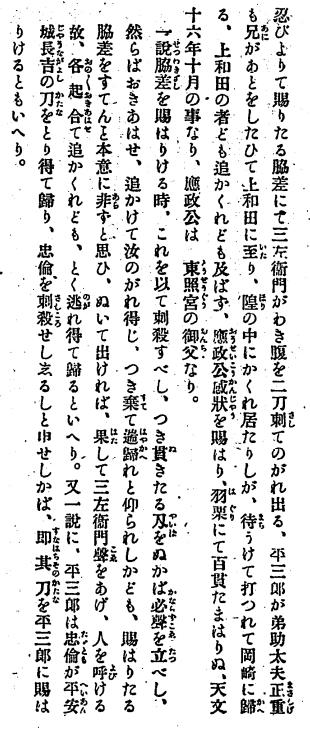 忍びよりて賜りたる脇差にて三左衛門がわき腹を二刀刺てのがれ出る、平三郎が弟助太夫正重
も兄があとをしたひて上和田に至り、隍の中にかくれ居たりしが、待うけて打つれて岡崎に歸
る、上和田の者ども追かくれども及ばず、應政公感狀を賜はり、羽栗にて百貫たまはりぬ、天文
十六年十月の事なり、應政公は　東照宮の御父なり。
一說脇差を賜はりける時、これを以て刺殺すべし、つき貫きたる刃をぬかば必聲を立べし、
然らばおきあはせ、追かけて汝のがれ得じ、つき棄て遁歸れと仰られしかども、賜はりたる
脇差をすてんと本意に非ずと思ひ、ぬいて出ければ、果して三左衛門聲をあげ、人を呼ける
故、各起合て追かくれども、とく逃れ得て歸るといへり。又一說に、平三郎は忠倫が平安
城長吉の刀をとり得て歸り、忠倫を刺殺せしゑるしと申せしかば、即其刀を平三郎に賜は
りけるともいへり。